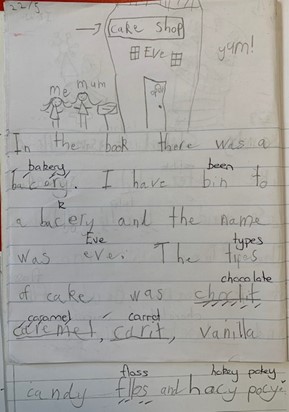 22/5
cake shop
Eve
yum!
me mum
In the book there was a
bakery been
bacery. I have bin to
k
a bacery and the name
Eve types
was eve. The tips
chocolate
of cake was choclit
caramel carrot
caremel, carit, vanilla
floss hokey pokey
candy flos and hacy pocy.